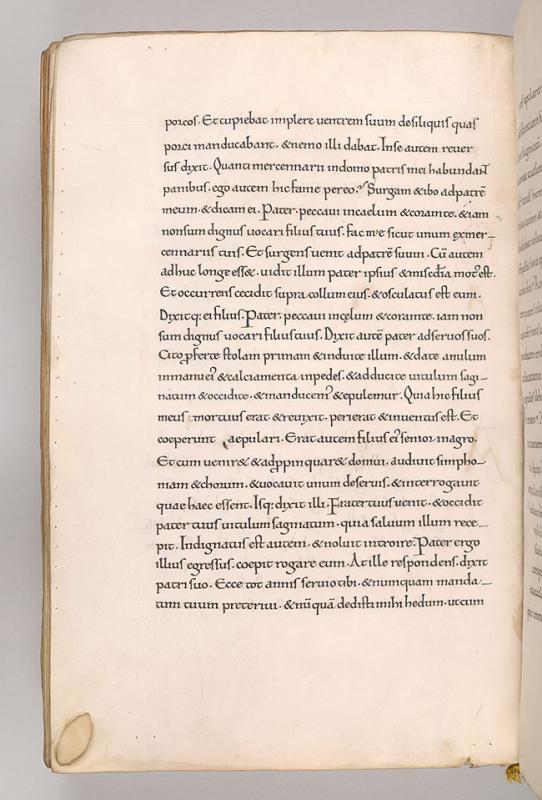 porcos. Et cupiebat implere ventrem suum de siliquis quas
porci manducabant. & nemo illi dabat. In se autem rever
sus dixit. Quanti mercennarii in domo patris mei habundant
panibus. ego autem hic fame pereo. Surgam & ibo ad patrē
meum. & dicam ei. Pater. peccavi in caelum & coram te. & iam
non sum dignus vocari filius tuus. fac me sicut unum ex mer-
cennariis tuis. Et surgens venit ad patrē suum. Cū autem
adhuc longe ess&. vidit illum pater ipsius & miscd̄ia mot' est.
Et occurrens cecidit supra collum eius. & osculatus est eum.
Dixitq: ei filius. Pater. peccavi in cęlum & coram te. iam non
sum dignus vocari filius tuus. Dixit autē pater ad servos suos.
Cito proferte stolam primam & induite illum. & date anulum
in manu ei' & calciamenta in pedes. & adducite vitulum sagi-
natum & occidite. & manducem' & epulemur. Quia hic filius
meus mortuus erat & revixit. perierat & inventus est. Et
coeperunt aepulari. Erat autem filius ei' senior in agro.
Et cum venir& & adppinquar& domui. audivit simpho-
niam & chorum. & vocavit unum de servis. & interrogavit
quae haec essent. Isq: dixit illi. Frater tuus venit. & occidit
pater tuus vitulum saginatum. quia salvum illum rece-
pit. Indignatus est autem. & noluit introire. Pater ergo
illius egressus. coepit rogare eum. At ille respondens. dixit
patri suo. Ecce tot annis servio tibi. & numquam manda-
tum tuum preterivi. & nūquā dedisti mihi hedum. ut cum